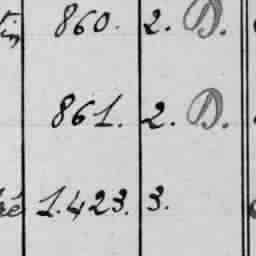 860. 2. D.
861. 2. D.
1.423. 3.